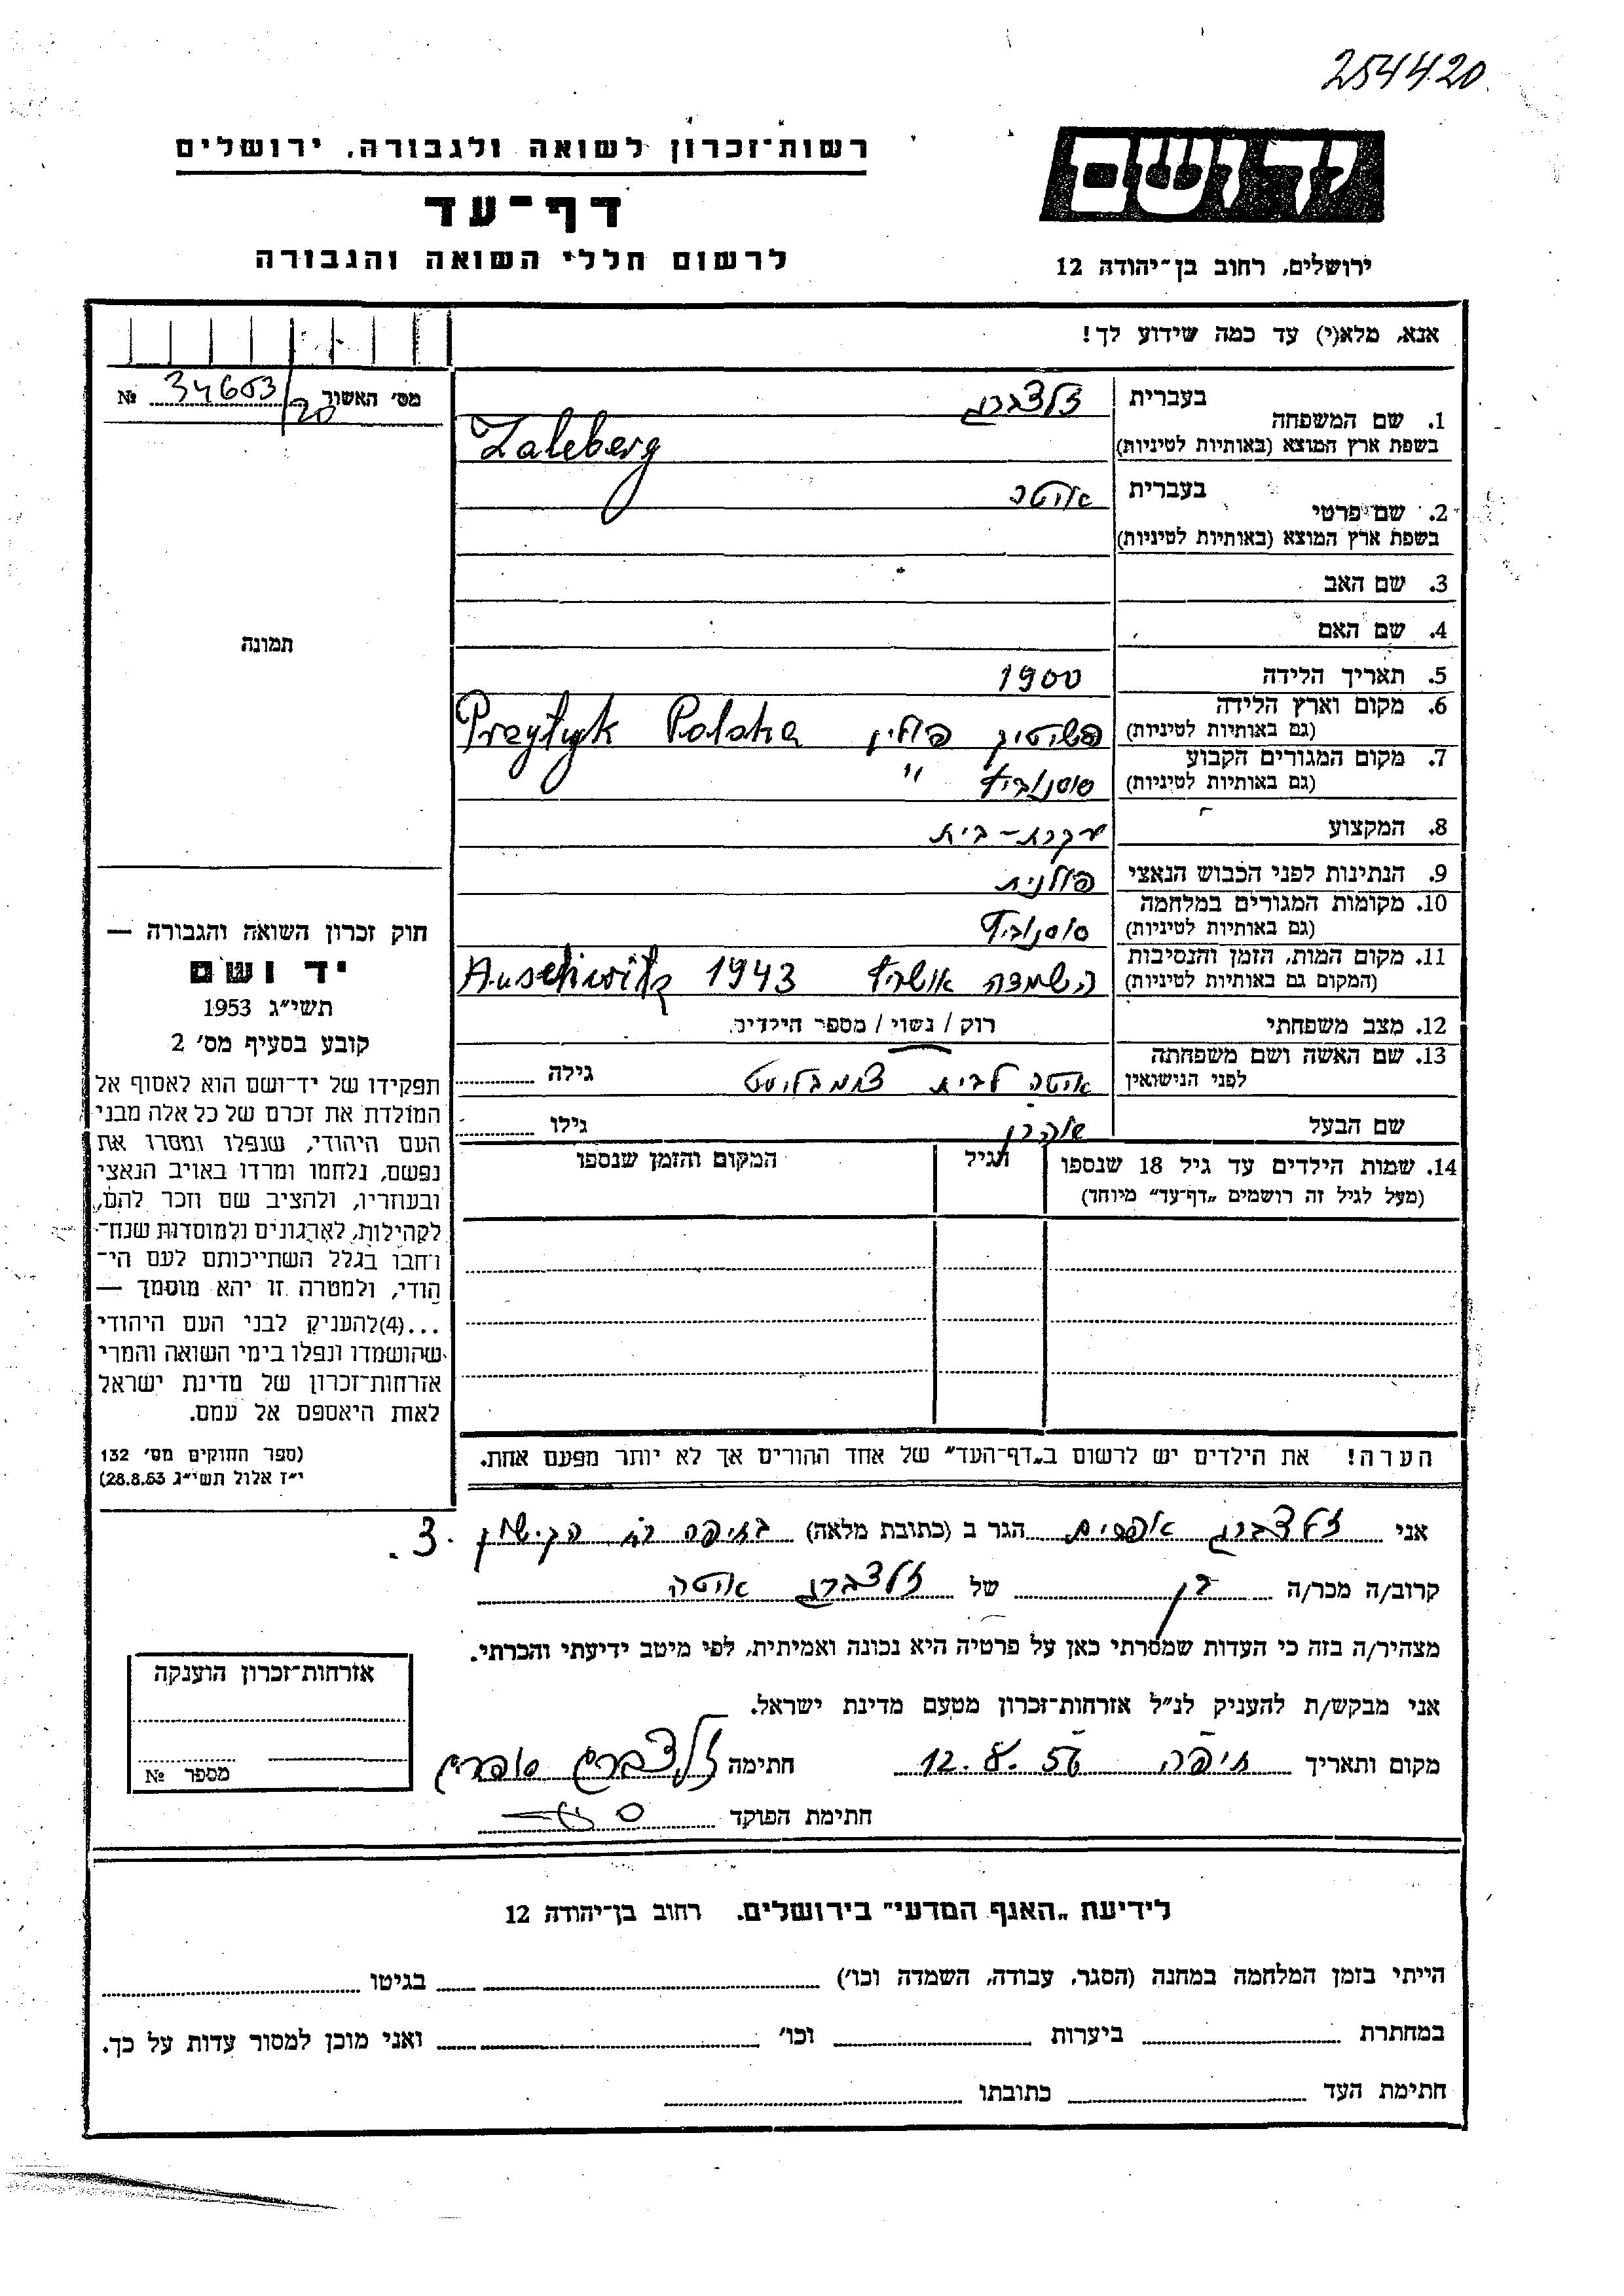 254420
רשות־זכרון לשואה ולגבורה, ירושלים
דף־עד
לרשום חללי השואה והגבורה
יד ושם
ירושלים, רחוב בן־יהודה 12
אנא, מלא(י) עד כמה שידוע לך!
מס' האשור 34653/20 №
תמונה
1. שם המשפחה בעברית זלצברג
בשפת ארץ המוצא (באותיות לטיניות) Zalcberg
2. שם פרטי בעברית איטה
בשפת ארץ המוצא (באותיות לטיניות)
3. שם האב
4. שם האם
5. תאריך הלידה 1900
6. מקום וארץ הלידה
(גם באותיות לטיניות) פשיטיק פולין Przytyk Polska
7. מקום המגורים הקבוע
(גם באותיות לטיניות) סוסנוביץ "
8. המקצוע עקרת-בית
9. הנתינות לפני הכבוש הנאצי פולנית
10. מקומות המגורים במלחמה
(גם באותיות לטיניות) סוסנוביץ
11. מקום המות, הזמן והנסיבות
(המקום גם באותיות לטיניות) השמדה אושויץ 1943 Auschwitz
12. מצב משפחתי רוק / נשוי / מספר הילדים
13. שם האשה ושם משפחתה
לפני הנישואין איטה לבית גילה
שם הבעל אהרן גילו
14. שמות הילדים עד גיל 18 שנספו הגיל המקום והזמן שנספו
(מעל לגיל זה רושמים „דף־עד" מיוחד)
הערה! את הילדים יש לרשום ב„דף־העד" של אחד ההורים אך לא יותר מפעם אחת.
חוק זכרון השואה והגבורה —
יד ושם
תשי"ג 1953
קובע בסעיף מס' 2
תפקידו של יד־ושם הוא לאסוף אל
המולדת את זכרם של כל אלה מבני
העם היהודי, שנפלו ומסרו את
נפשם, נלחמו ומרדו באויב הנאצי
ובעוזריו, ולהציב שם וזכר להם,
לקהילות, לארגונים ולמוסדות שנח־
רבו בגלל השתייכותם לעם הי־
הודי, ולמטרה זו יהא מוסמך —
...(4)להעניק לבני העם היהודי
שהושמדו ונפלו בימי השואה והמרי
אזרחות־זכרון של מדינת ישראל
לאות היאספם אל עמם.
(ספר החוקים מס' 132
י"ז אלול תשי"ג 28.8.53)
אני זלצברג אפרים הגר ב (כתובת מלאה) בחיפה רח הקישון 3.
קרוב/ה מכר/ה בן של זלצברג איטה
מצהיר/ה בזה כי העדות שמסרתי כאן על פרטיה היא נכונה ואמיתית, לפי מיטב ידיעתי והכרתי.
אני מבקש/ת להעניק לנ"ל אזרחות־זכרון מטעם מדינת ישראל.
מקום ותאריך חיפה 12.8.56 חתימה זלצברג אפרים
חתימת הפוקד
אזרחות־זכרון הוענקה
מספר №
לידיעת „האגף המדעי" בירושלים. רחוב בן־יהודה 12
הייתי בזמן המלחמה במחנה (הסגר, עבודה, השמדה וכו') בגיטו
במחתרת ביערות וכו' ואני מוכן למסור עדות על כך.
חתימת העד כתובתו